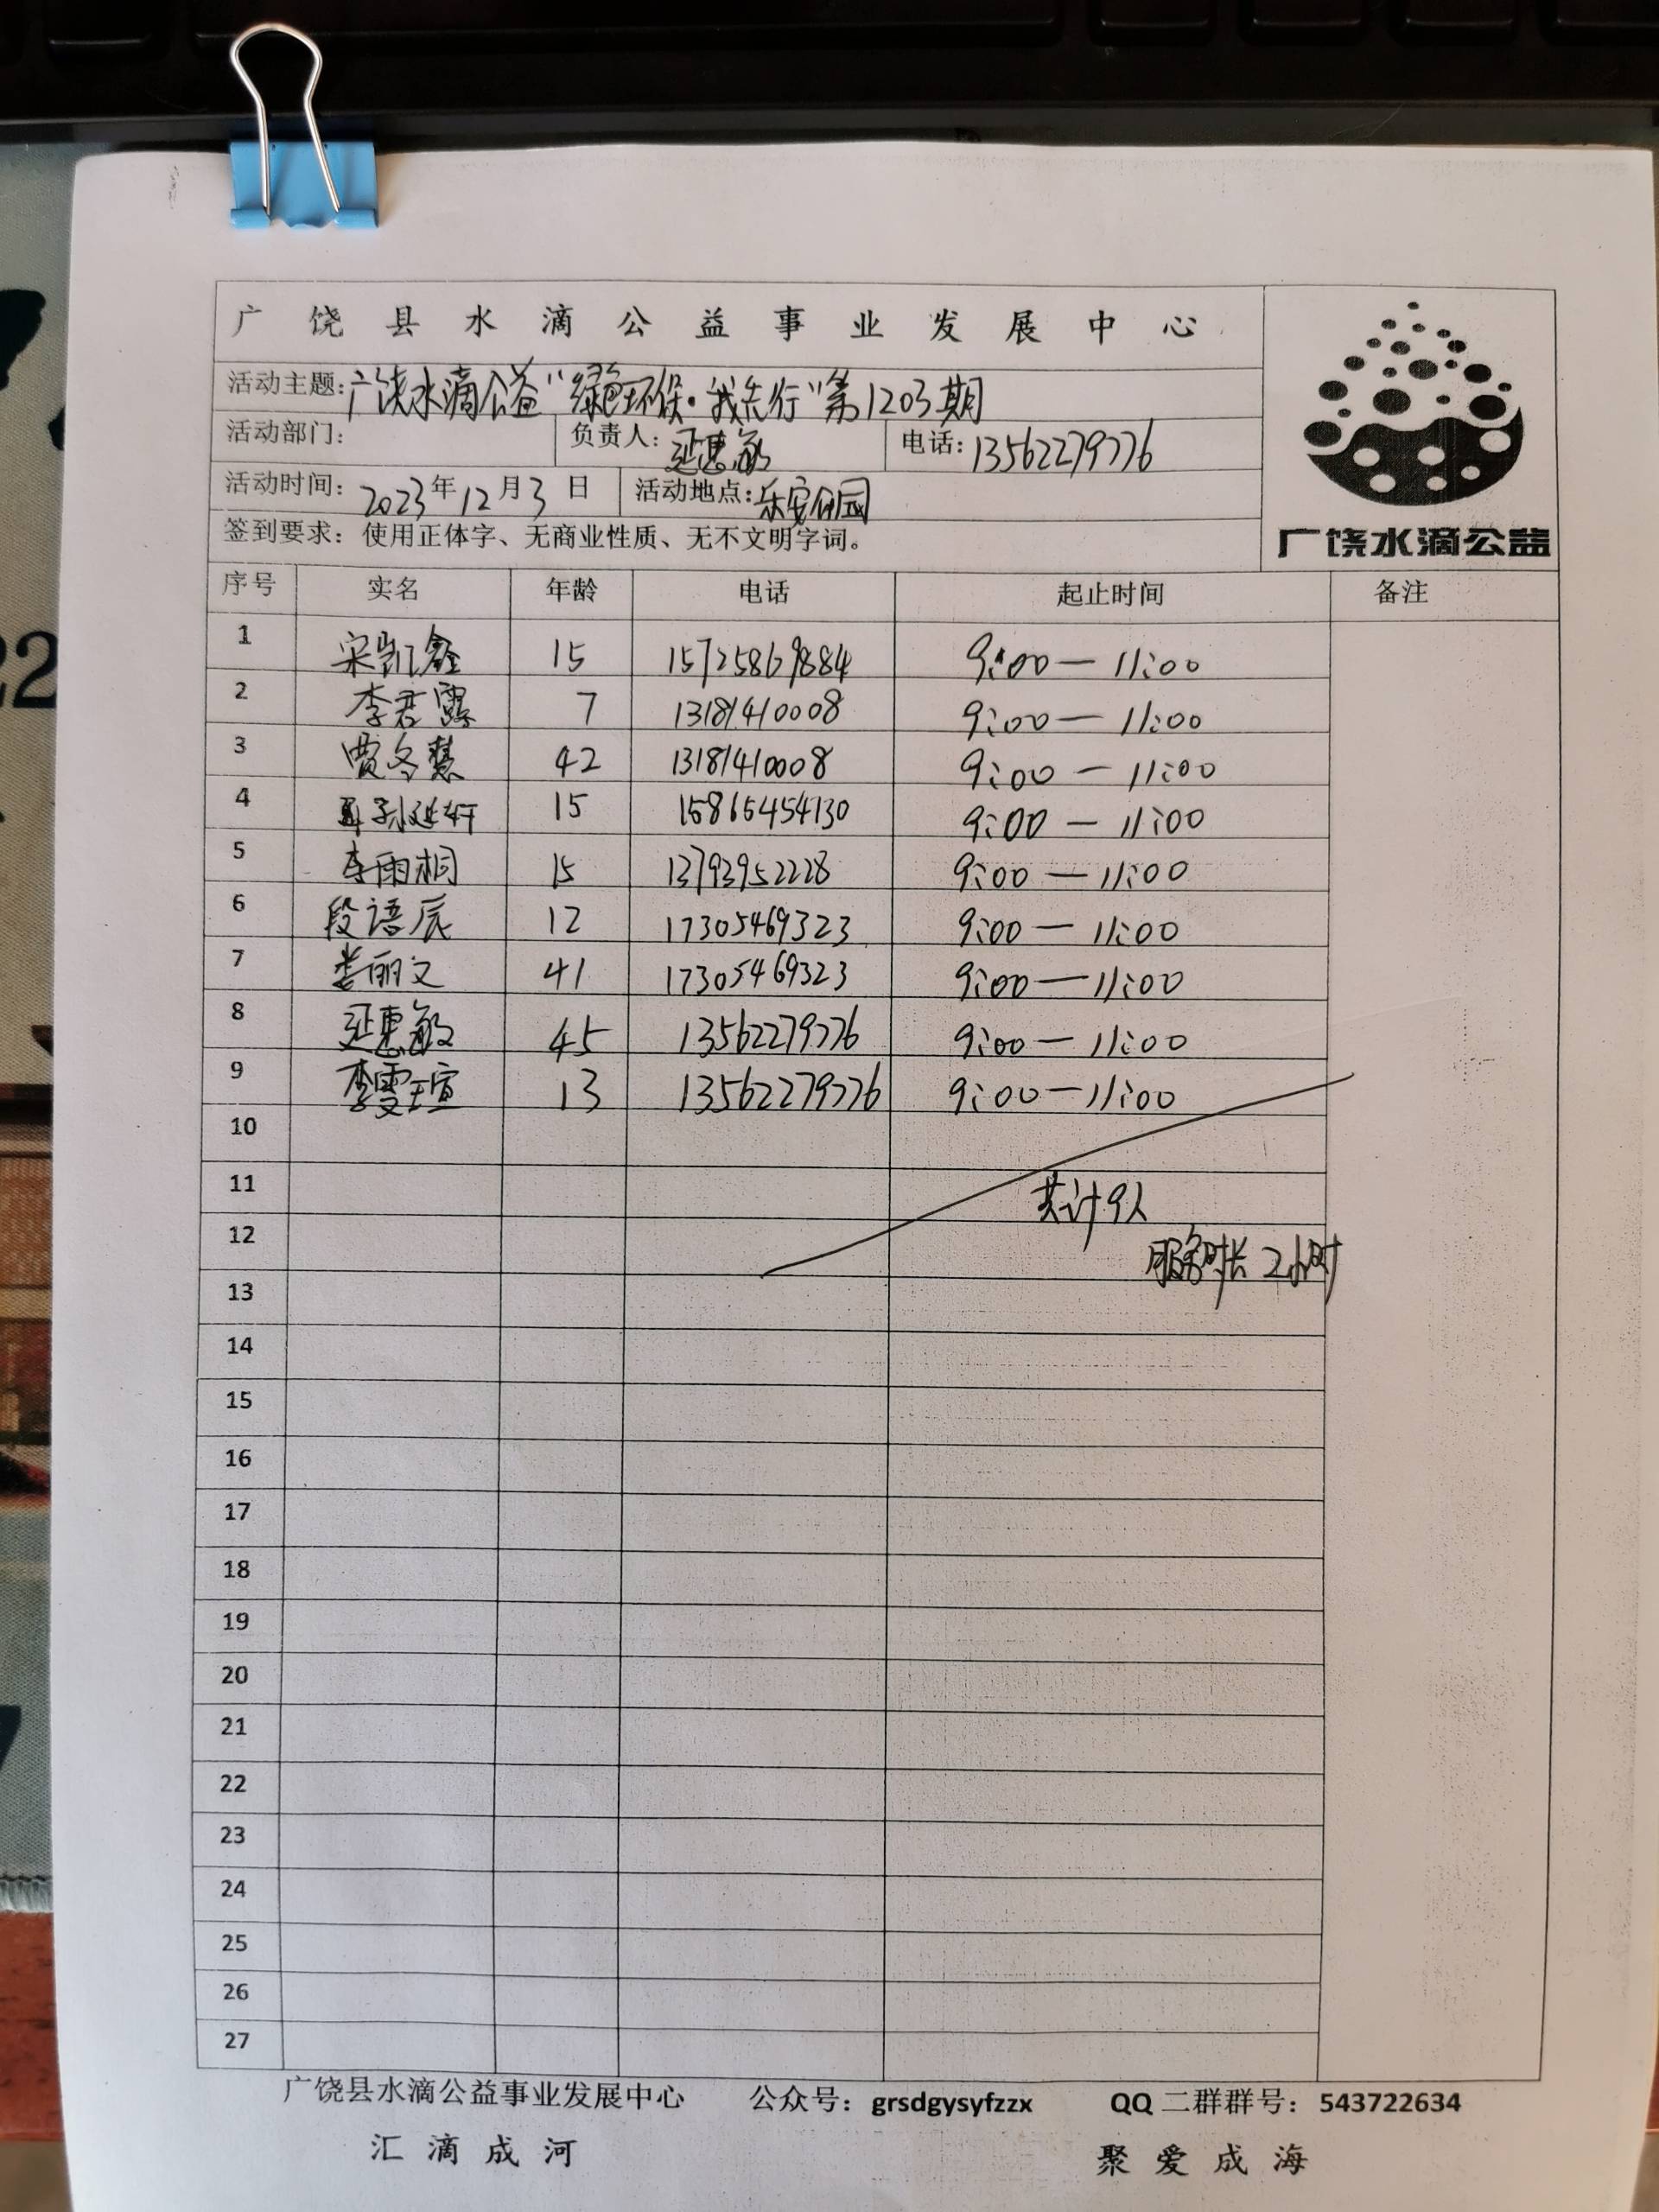 广饶县水滴公益事业发展中心
活动主题:广饶水滴公益“绿色环保·我先行”第1203期
活动部门: 负责人:延惠敏 电话:13562279776
活动时间:2023年12月3日 活动地点:乐安公园
签到要求:使用正体字、无商业性质、无不文明字词。
广饶水滴公益
序号 实名 年龄 电话 起止时间 备注
1 宋凯鑫 15 15725869884 9:00—11:00
2 李君露 7 13181410008 9:00—11:00
3 贾冬慧 42 13181410008 9:00—11:00
4 15 15865454130 9:00—11:00
5 李雨桐 15 13793952228 9:00—11:00
6 段语辰 12 17305469323 9:00—11:00
7 娄丽文 41 17305469323 9:00—11:00
8 延惠敏 45 13562279776 9:00—11:00
9 李雯瑄 13 13562279776 9:00—11:00
10
11 共计9人
12 服务时长2小时
13
14
15
16
17
18
19
20
21
22
23
24
25
26
27
广饶县水滴公益事业发展中心 公众号:grsdgysyfzzx QQ二群群号:543722634
汇滴成河 聚爱成海